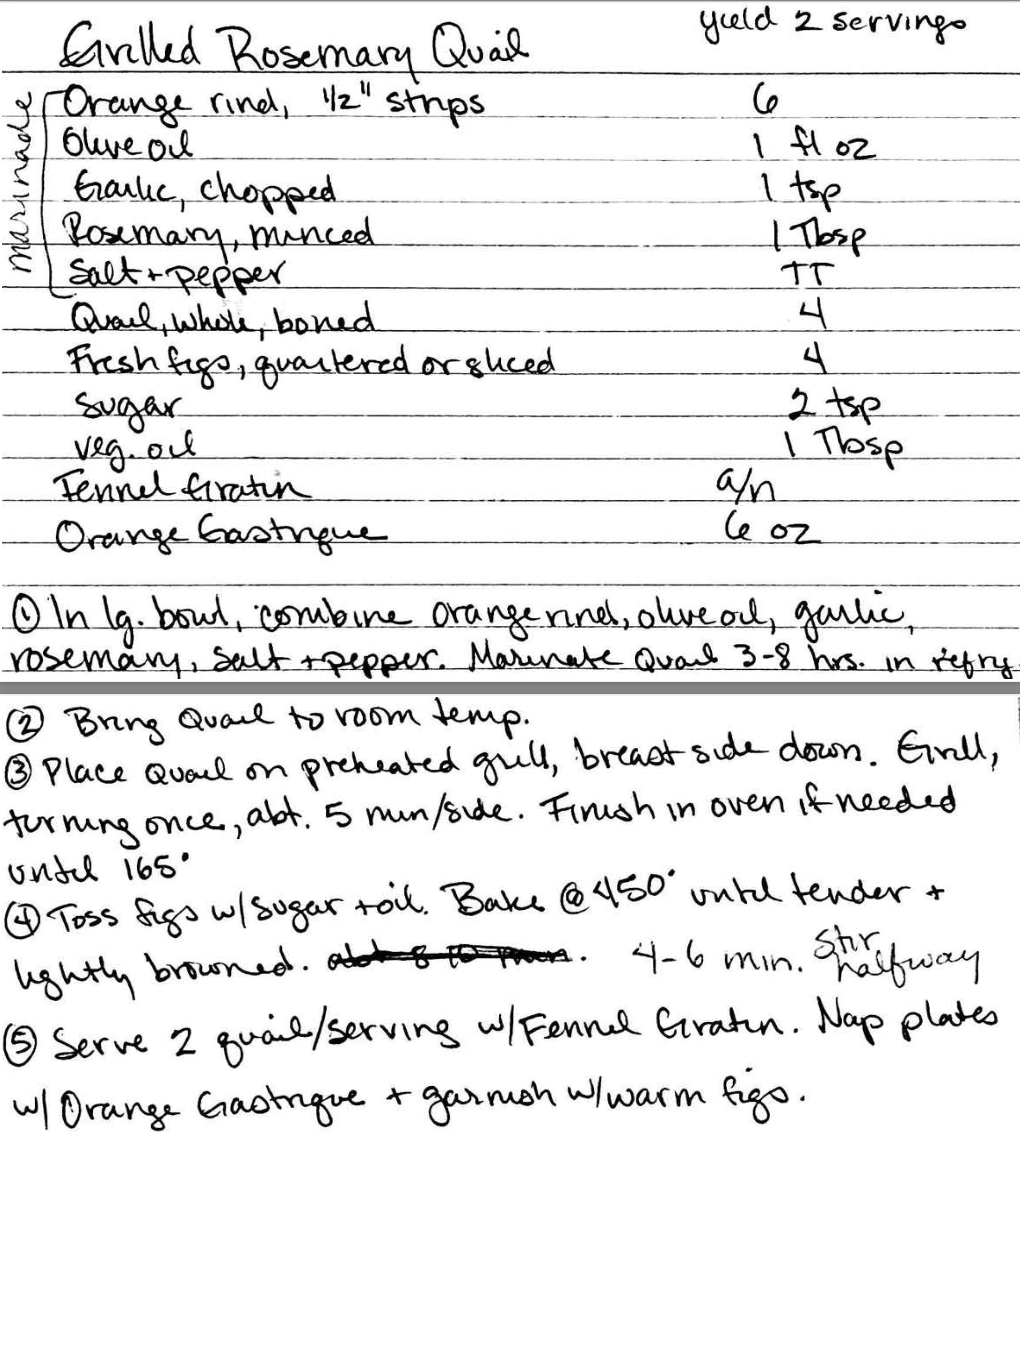 Grilled Rosemary Quail yield 2 servings
marinade
Orange rind, 1/2" strips 6
Olive oil 1 fl oz
Garlic, chopped 1 tsp
Rosemary, minced 1 Tbsp
Salt + pepper TT
Quail, whole, boned 4
Fresh figs, quartered or sliced 4
Sugar 2 tsp
Veg. oil 1 Tbsp
Fennel Gratin a/n
Orange Gastrique 6 oz
① In lg. bowl, combine orange rind, olive oil, garlic,
rosemary, salt + pepper. Marinate Quail 3-8 hrs. in refrg.
② Bring Quail to room temp.
③ Place Quail on preheated grill, breast side down. Grill,
turning once, abt. 5 min/side. Finish in oven if needed
until 165°
④ Toss figs w/sugar + oil. Bake @ 450° until tender +
lightly browned. abt 8-10 min. 4-6 min. Stir halfway
⑤ Serve 2 quail/serving w/Fennel Gratin. Nap plates
w/ Orange Gastrique + garnish w/warm figs.